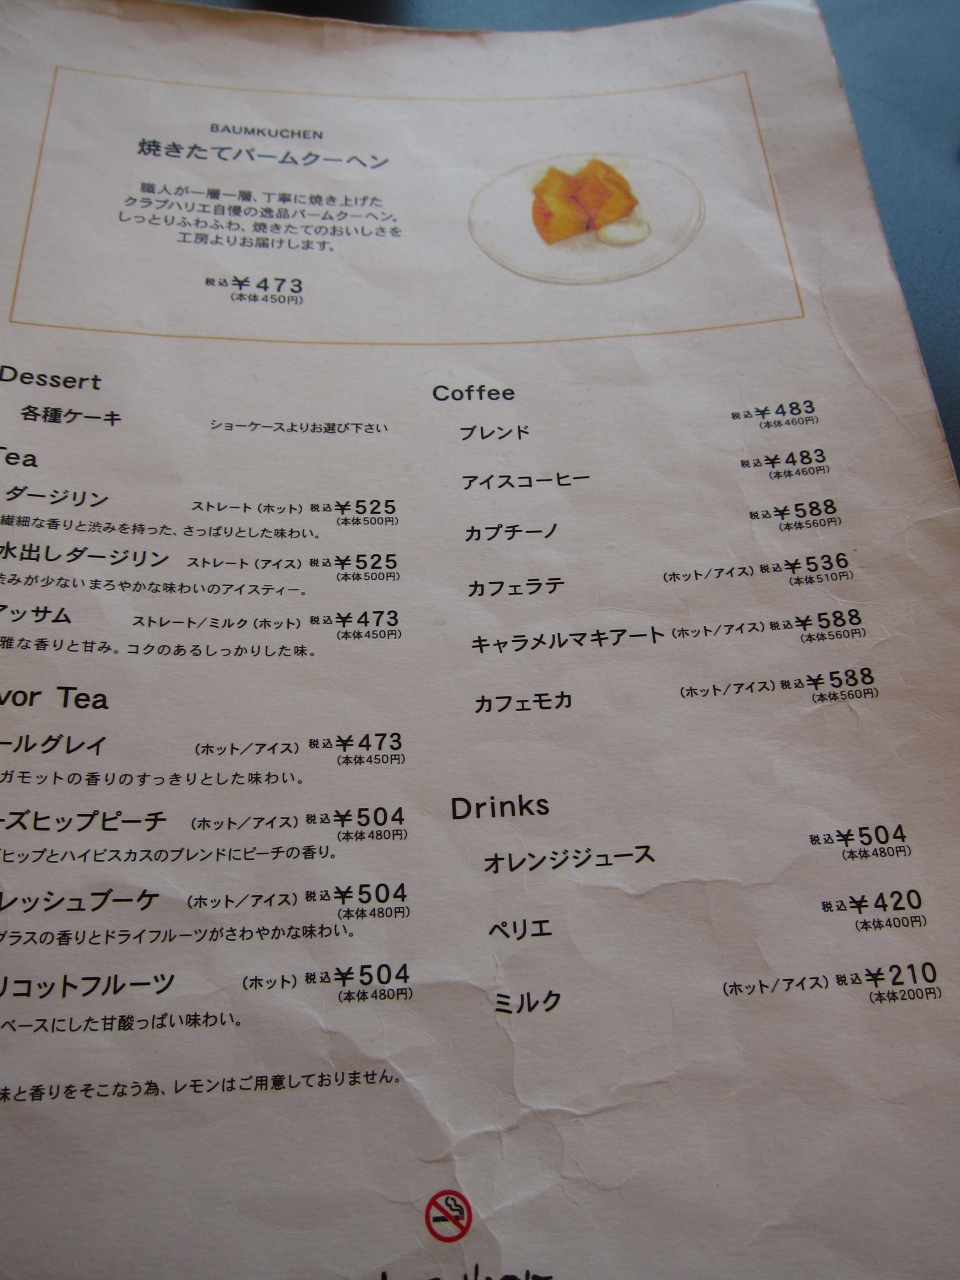 BAUMKUCHEN
焼きたてバームクーヘン
職人が一層一層、丁寧に焼き上げた
クラブハリエ自慢の逸品バームクーヘン。
しっとりふわふわ、焼きたてのおいしさを
工房よりお届けします。
税込¥473
(本体450円)
Dessert
各種ケーキ ショーケースよりお選び下さい
Tea
ダージリン ストレート(ホット) 税込¥525
(本体500円)
繊細な香りと渋みを持った、さっぱりとした味わい。
水出しダージリン ストレート(アイス) 税込¥525
(本体500円)
渋みが少ないまろやかな味わいのアイスティー。
アッサム ストレート/ミルク(ホット) 税込¥473
(本体450円)
雅な香りと甘み。コクのあるしっかりした味。
vor Tea
ールグレイ (ホット/アイス) 税込¥473
(本体450円)
ガモットの香りのすっきりとした味わい。
ーズヒップピーチ (ホット/アイス) 税込¥504
(本体480円)
ヒップとハイビスカスのブレンドにピーチの香り。
レッシュブーケ (ホット/アイス) 税込¥504
(本体480円)
グラスの香りとドライフルーツがさわやかな味わい。
リコットフルーツ (ホット) 税込¥504
(本体480円)
ベースにした甘酸っぱい味わい。
味と香りをそこなう為、レモンはご用意しておりません。
Coffee
ブレンド 税込¥483
(本体460円)
アイスコーヒー 税込¥483
(本体460円)
カプチーノ 税込¥588
(本体560円)
カフェラテ (ホット/アイス) 税込¥536
(本体510円)
キャラメルマキアート (ホット/アイス) 税込¥588
(本体560円)
カフェモカ (ホット/アイス) 税込¥588
(本体560円)
Drinks
オレンジジュース 税込¥504
(本体480円)
ペリエ 税込¥420
(本体400円)
ミルク (ホット/アイス) 税込¥210
(本体200円)